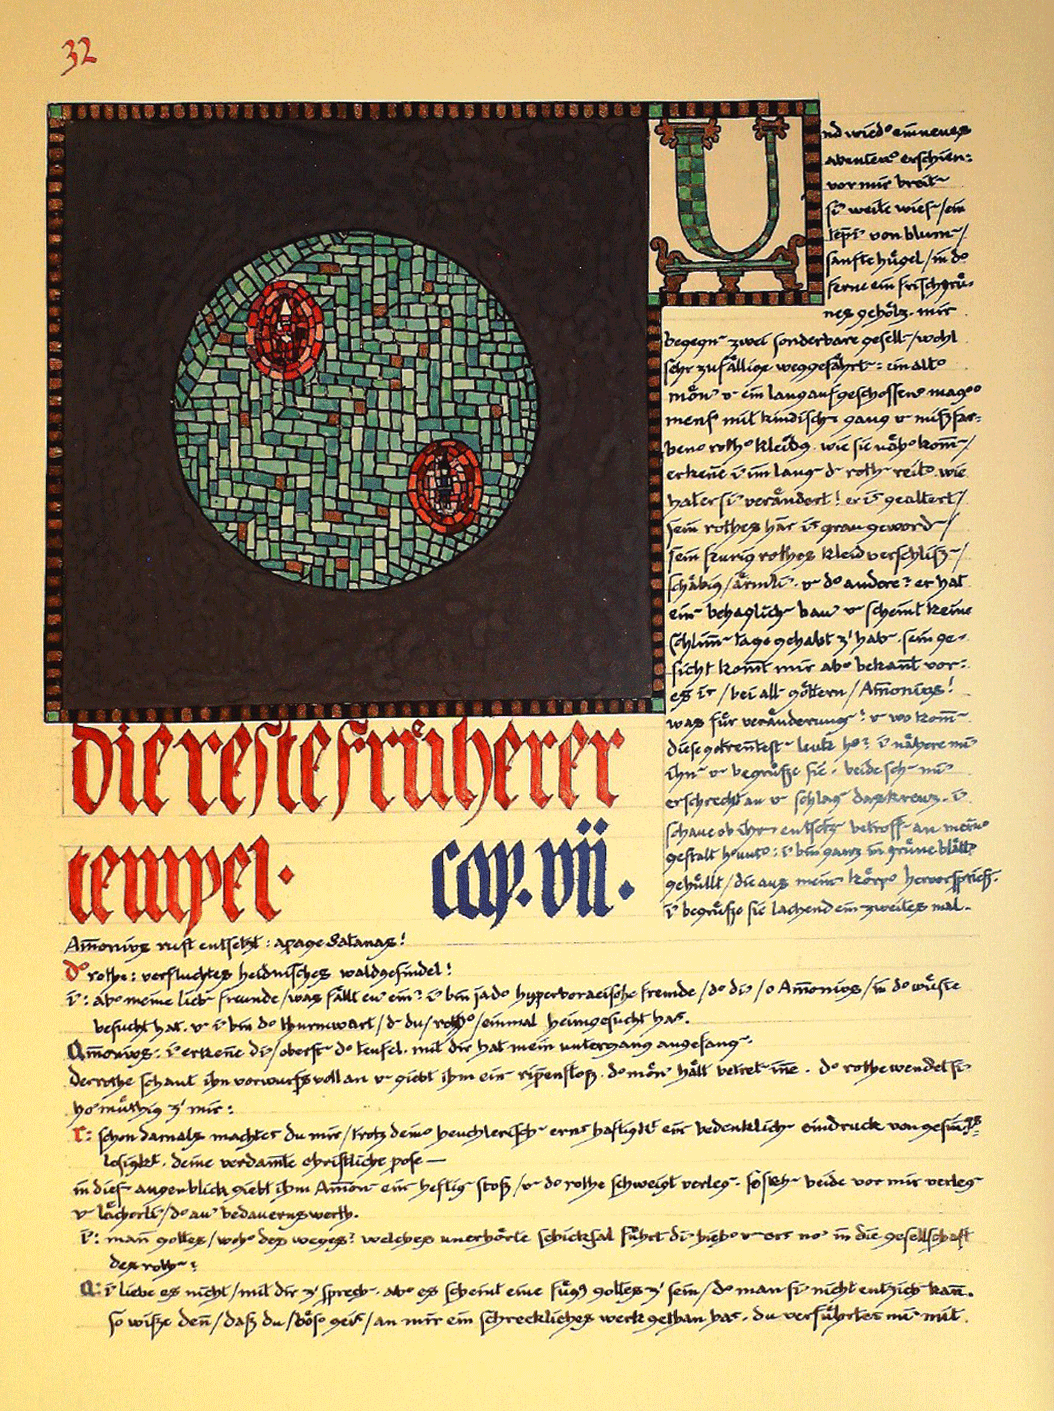 32
U
nd wied° ein neues
abenteu° erschien:
vor mir breit~
si' weite wies~/ein
tepi' von blum~/
sanfte hügel/in d°
ferne ein frischgrü-
nes gehölz. mir
begegn~ zwei sonderbare gesell~/wohl
sehr zufällige weggefährt~: ein alt°
mön' v ein langaufgeschossen° mag°
mensch mit kindisch~ gang v mißfar-
ben° roth° kleidg. wie sie näh° kom~/
erkene i' im lang~ d~ roth~ reit°. wie
hat er si' verändert! er is gealtert/
sein rothes har is grau geword~/
sein feurig rothes kleid verschliß~/
schäbig/ärmli'. v d° andere? er hat
ein~ behaglich~ bau' v scheint keine
schlim~ tage gehabt z' hab~. sein ge-
sicht komt mir ab° bekant vor:
es is/bei all~ göttern/Amonios!
was für veränderung~! v wo kom~
diese gotrentest~ leute her? i' nähere mi'
ihn~ v begrüße sie. beide seh~ mi'
erschreckt an v schlag~ das kreuz. i'
schaue ob ihr~ entsetz~ betroff~ an mein°
gestalt hinunt°: i' bin ganz in grüne blätt°
gehüllt/die aus mein~ körp° hervorsprieß~.
i' begrüße sie lachend ein zweites mal.
die reste früherer
tempel.
cap. vii.
Amonios ruft entsetzt: apage Satanas!
d° rothe: verfluchtes heidnisches waldgesindel!
i': ab° meine lieb~ freunde/was fällt eu' ein? i' bin ja d° hyperboraeische fremde/d° di'/o Amonios/in d° wüste
besucht hat. v i' bin d° thurmwart/d~ du/roth°/einmal heimgesucht has.
Amonios: i' erkene di'/oberst~ d° teufel. mit dir hat mein untergang angefang~.
der rothe schaut ihn vorwurfsvoll an v giebt ihm ein~ ripenstoß. d° mön' hält betret~ ine. d° rothe wendet si'
ho'müthig z' mir:
r: schon damals machtes du mir/trotz dein° heuchlerisch~ ernsthaftigkt ein~ bedenklich~ eindruck von gesinungs-
losigkt. deine verdamte christliche pose—
in dies~ augenblick giebt ihm Amon~ ein~ heftig~ stoß/v d° rothe schweigt verleg~. so steh~ beide vor mir verleg~
v lächerli'/do' au' bedauernswerth.
i': man gottes/woh° des weges? welches unerhörte schicksal führt di' hieh° v ers no' in die gesellschaft
des roth~?
A: i' liebe es nicht/mit dir z' sprech~. ab° es scheint eine függ gottes z' sein/d° man si' nicht entzieh~ kan.
so wiße den/daß du/böser geis/an mir ein schreckliches werk gethan has. du verführtes mi' mit